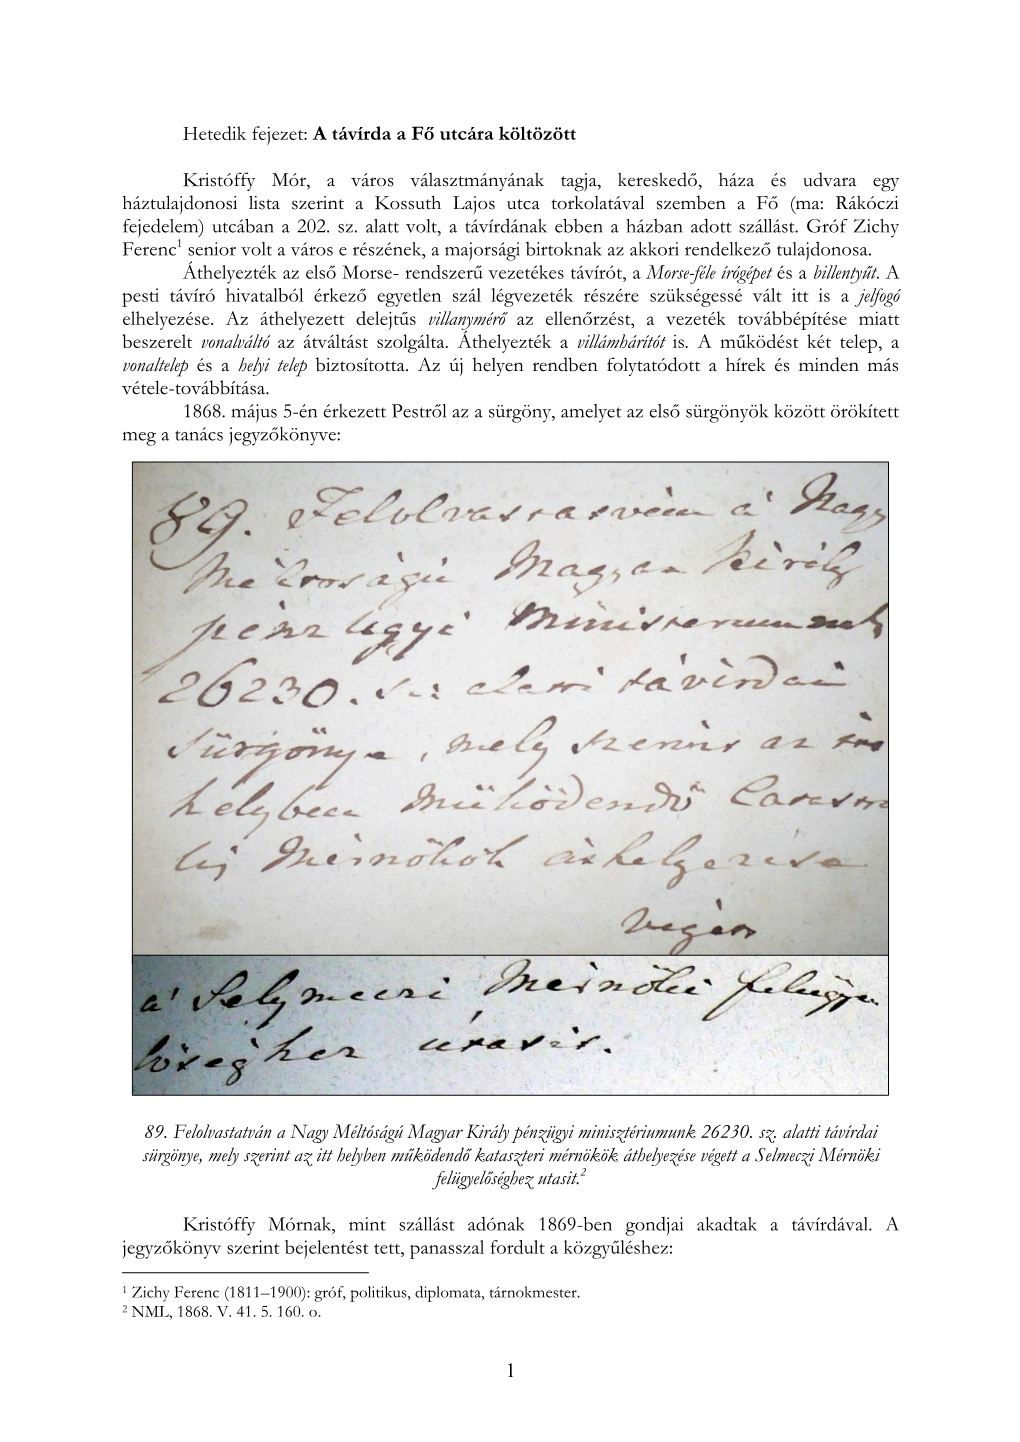 Hetedik fejezet: A távírda a Fő utcára költözött
Kristóffy Mór, a város választmányának tagja, kereskedő, háza és udvara egy
háztulajdonosi lista szerint a Kossuth Lajos utca torkolatával szemben a Fő (ma: Rákóczi
fejedelem) utcában a 202. sz. alatt volt, a távírdának ebben a házban adott szállást. Gróf Zichy
Ferenc1 senior volt a város e részének, a majorsági birtoknak az akkori rendelkező tulajdonosa.
Áthelyezték az első Morse- rendszerű vezetékes távírót, a Morse-féle írógépet és a billentyűt. A
pesti távíró hivatalból érkező egyetlen szál légvezeték részére szükségessé vált itt is a jelfogó
elhelyezése. Az áthelyezett delejtűs villanymérő az ellenőrzést, a vezeték továbbépítése miatt
beszerelt vonalváltó az átváltást szolgálta. Áthelyezték a villámhárítót is. A működést két telep, a
vonaltelep és a helyi telep biztosította. Az új helyen rendben folytatódott a hírek és minden más
vétele-továbbítása.
1868. május 5-én érkezett Pestről az a sürgöny, amelyet az első sürgönyök között örökített
meg a tanács jegyzőkönyve:
89. Felolvastatván a' Nagy
Méltóságú Magyar Király
pénzügyi Ministeriumunk
26230. sz: alatti távirdai
sürgönye, mely szerint az itt
helyben működendő Catastra
lis Mérnökök áthelyezése
végett
a' Selymeczi Mérnöki felügye
lőséghez útasit.
89. Felolvastatván a Nagy Méltóságú Magyar Király pénzügyi minisztériumunk 26230. sz. alatti távírdai
sürgönye, mely szerint az itt helyben működendő kataszteri mérnökök áthelyezése végett a Selmeczi Mérnöki
felügyelőséghez utasit.2
Kristóffy Mórnak, mint szállást adónak 1869-ben gondjai akadtak a távírdával. A
jegyzőkönyv szerint bejelentést tett, panasszal fordult a közgyűléshez:
1 Zichy Ferenc (1811–1900): gróf, politikus, diplomata, tárnokmester.
2 NML, 1868. V. 41. 5. 160. o.
1